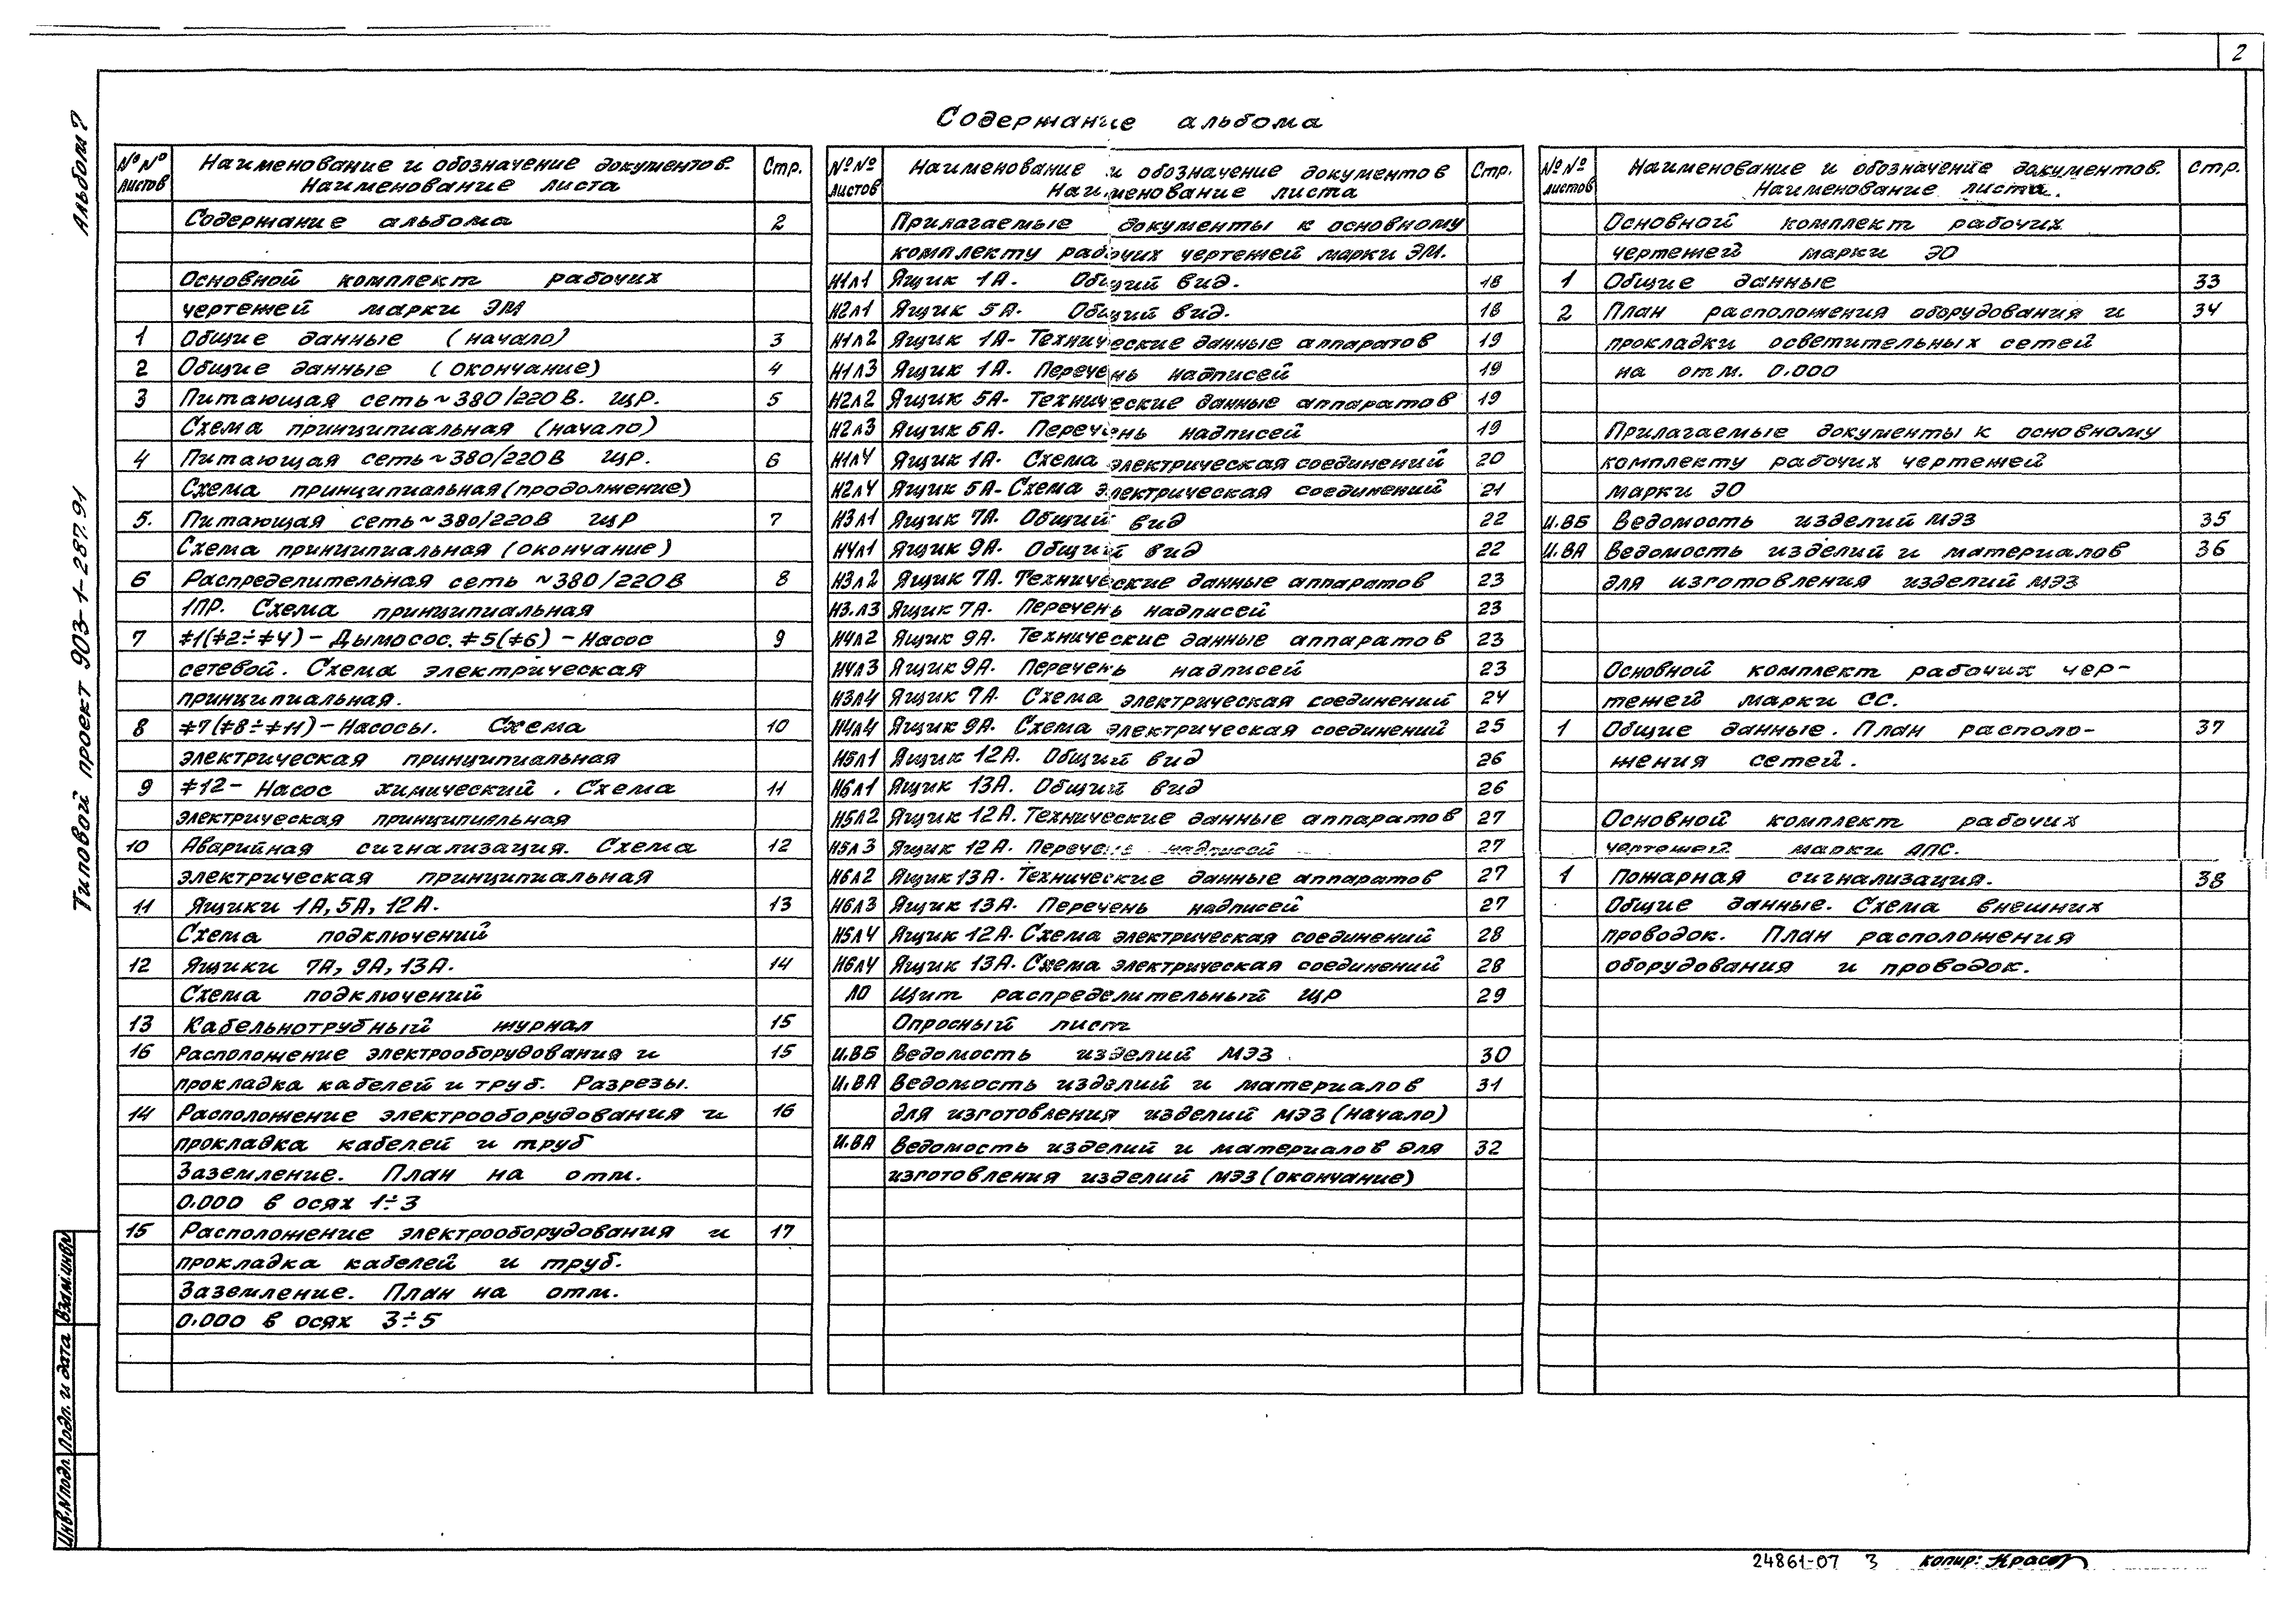 2
Содержание альбома
Альбом 7
Типовой проект 903-1-287.91
№№ листов
Наименование и обозначение документов.
Наименование листа
Стр.
Содержание альбома 2
Основной комплект рабочих
чертежей марки ЭМ
1 Общие данные (начало) 3
2 Общие данные (окончание) 4
3 Питающая сеть ~380/220В. ЩР. 5
Схема принципиальная (начало)
4 Питающая сеть ~380/220В ЩР. 6
Схема принципиальная (продолжение)
5. Питающая сеть ~380/220В ЩР 7
Схема принципиальная (окончание)
6 Распределительная сеть ~380/220В 8
1ПР. Схема принципиальная
7 ≠1(≠2÷≠4) - Дымосос. ≠5(≠6) - Насос 9
сетевой. Схема электрическая
принципиальная.
8 ≠7(≠8÷≠11) - Насосы. Схема 10
электрическая принципиальная
9 ≠12 - Насос химический. Схема 11
электрическая принципиальная
10 Аварийная сигнализация. Схема 12
электрическая принципиальная
11 Ящики 1А, 5А, 12А. 13
Схема подключений
12 Ящики 7А, 9А, 13А. 14
Схема подключений
13 Кабельнотрубный журнал 15
16 Расположение электрооборудования и 15
прокладка кабелей и труб. Разрезы.
14 Расположение электрооборудования и 16
прокладка кабелей и труб
Заземление. План на отм.
0.000 в осях 1÷3
15 Расположение электрооборудования и 17
прокладка кабелей и труб.
Заземление. План на отм.
0.000 в осях 3÷5
№№ листов
Наименование и обозначение документов
Наименование листа
Стр.
Прилагаемые документы к основному
комплекту рабочих чертежей марки ЭМ.
Н1Л1 Ящик 1А. Общий вид. 18
Н2Л1 Ящик 5А. Общий вид. 18
Н1Л2 Ящик 1А- Технические данные аппаратов 19
Н1Л3 Ящик 1А. Перечень надписей 19
Н2Л2 Ящик 5А- Технические данные аппаратов 19
Н2Л3 Ящик 5А. Перечень надписей 19
Н1Л4 Ящик 1А. Схема электрическая соединений 20
Н2Л4 Ящик 5А- Схема электрическая соединений 21
Н3Л1 Ящик 7А. Общий вид 22
Н4Л1 Ящик 9А. Общий вид 22
Н3Л2 Ящик 7А. Технические данные аппаратов 23
Н3.Л3 Ящик 7А. Перечень надписей 23
Н4Л2 Ящик 9А. Технические данные аппаратов 23
Н4Л3 Ящик 9А. Перечень надписей 23
Н3Л4 Ящик 7А. Схема электрическая соединений 24
Н4Л4 Ящик 9А. Схема электрическая соединений 25
Н5Л1 Ящик 12А. Общий вид 26
Н6Л1 Ящик 13А. Общий вид 26
Н5Л2 Ящик 12А. Технические данные аппаратов 27
Н5Л3 Ящик 12А. Перечень надписей 27
Н6Л2 Ящик 13А. Технические данные аппаратов 27
Н6Л3 Ящик 13А. Перечень надписей 27
Н5Л4 Ящик 12А. Схема электрическая соединений 28
Н6Л4 Ящик 13А. Схема электрическая соединений 28
ЛО Щит распределительный ЩР 29
Опросный лист
И.ВБ Ведомость изделий МЭЗ 30
И.ВА Ведомость изделий и материалов 31
для изготовления изделий МЭЗ (начало)
И.ВА Ведомость изделий и материалов для 32
изготовления изделий МЭЗ (окончание)
№№ листов
Наименование и обозначение документов.
Наименование листа.
Стр.
Основной комплект рабочих
чертежей марки ЭО
1 Общие данные 33
2 План расположения оборудования и 34
прокладки осветительных сетей
на отм. 0.000
Прилагаемые документы к основному
комплекту рабочих чертежей
марки ЭО
И.ВБ Ведомость изделий МЭЗ 35
И.ВА Ведомость изделий и материалов 36
для изготовления изделий МЭЗ
Основной комплект рабочих чер-
тежей марки СС.
1 Общие данные. План располо- 37
жения сетей.
Основной комплект рабочих
чертежей марки АПС.
1 Пожарная сигнализация. 38
Общие данные. Схема внешних
проводок. План расположения
оборудования и проводок.
Инв.N подл.
Подп. и дата
Взам.инв.N
24861-07 3 копир: